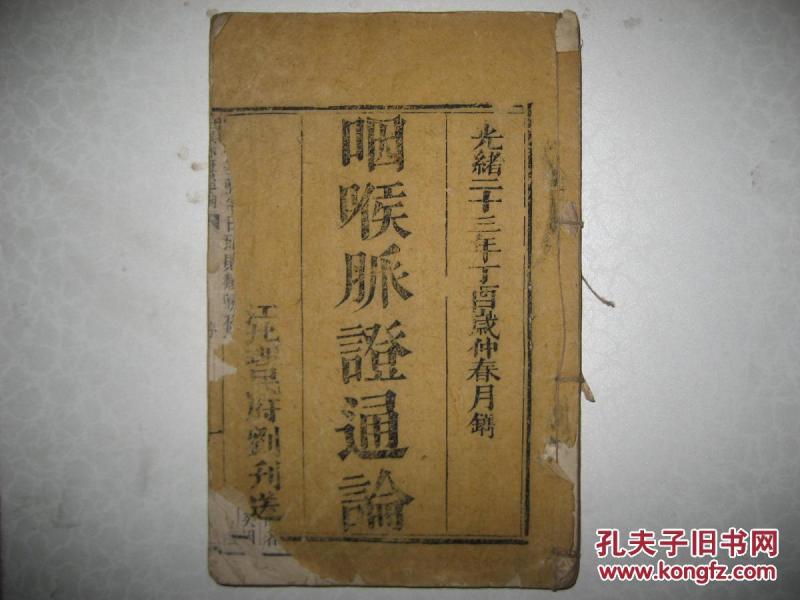 光緒二十三年丁酉歲仲春月鐫
咽喉脈證通論
江北理民府劉刊送
孔夫子旧书网
www.kongfz.com